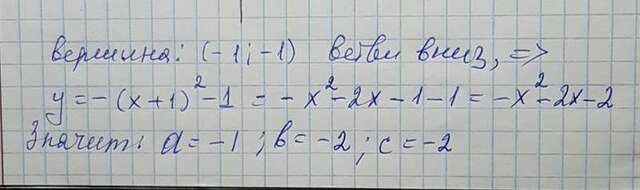 вершина: (-1; -1) ветви вниз, =>
y = -(x+1)² - 1 = -x² - 2x - 1 - 1 = -x² - 2x - 2
Значит: a = -1; b = -2; c = -2